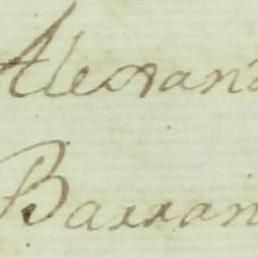 Alexan
Barran